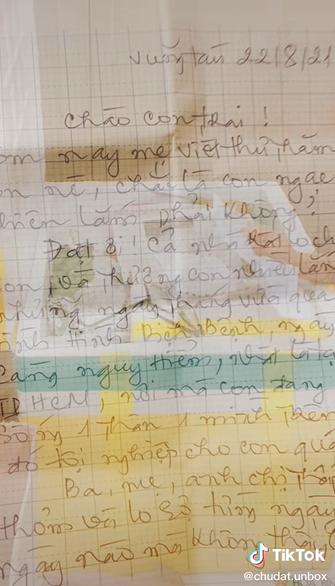 Vũng tàu 22/8/21
chào con trai !
nay mẹ viết thư thăm
con nè, chắc là con ngạc
nhiên lắm phải không?
Đạt ơi! cả nhà
và thương con nhiều lắm
những ngày tháng vừa qua
tình hình Dịch Bệnh ngày
càng nguy hiểm, nhất là tại
TP HCM, nơi mà con đang
sống 1 thân 1 mình
đó tội nghiệp cho con quá
Ba, mẹ, anh chị
và lo sợ từng ngày
ngày nào mà không
TikTok
@chudat.unbox